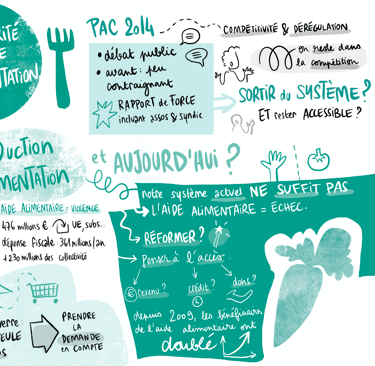 RITE
E
NTATION
PAC 2014
• débat public
• avant : peu
contraignant
RAPPORT de FORCE
incluant assos & syndic
COMPÉTITIVITÉ & DÉRÉGULATION
on reste dans
la compétition
SORTIR du SYSTÈME ?
ET rester ACCESSIBLE ?
DUCTION
MENTATION
AIDE ALIMENTAIRE = VIOLENCE
476 millions € UE, subs..
dépense fiscale 361 millions/an
+ 230 millions des collectivité
et AUJOURD'HUI ?
notre système actuel NE SUFFIT PAS
L'AIDE ALIMENTAIRE = ÉCHEC.
RÉFORMER ?
Penser à l'accès
revenu ?
crédit ?
dons ?
depuis 2009, les bénéficiaires
de l'aide alimentaire ont
doublé
erre :
EULE
OS
PRENDRE
LA
DEMANDE
en COMPTE